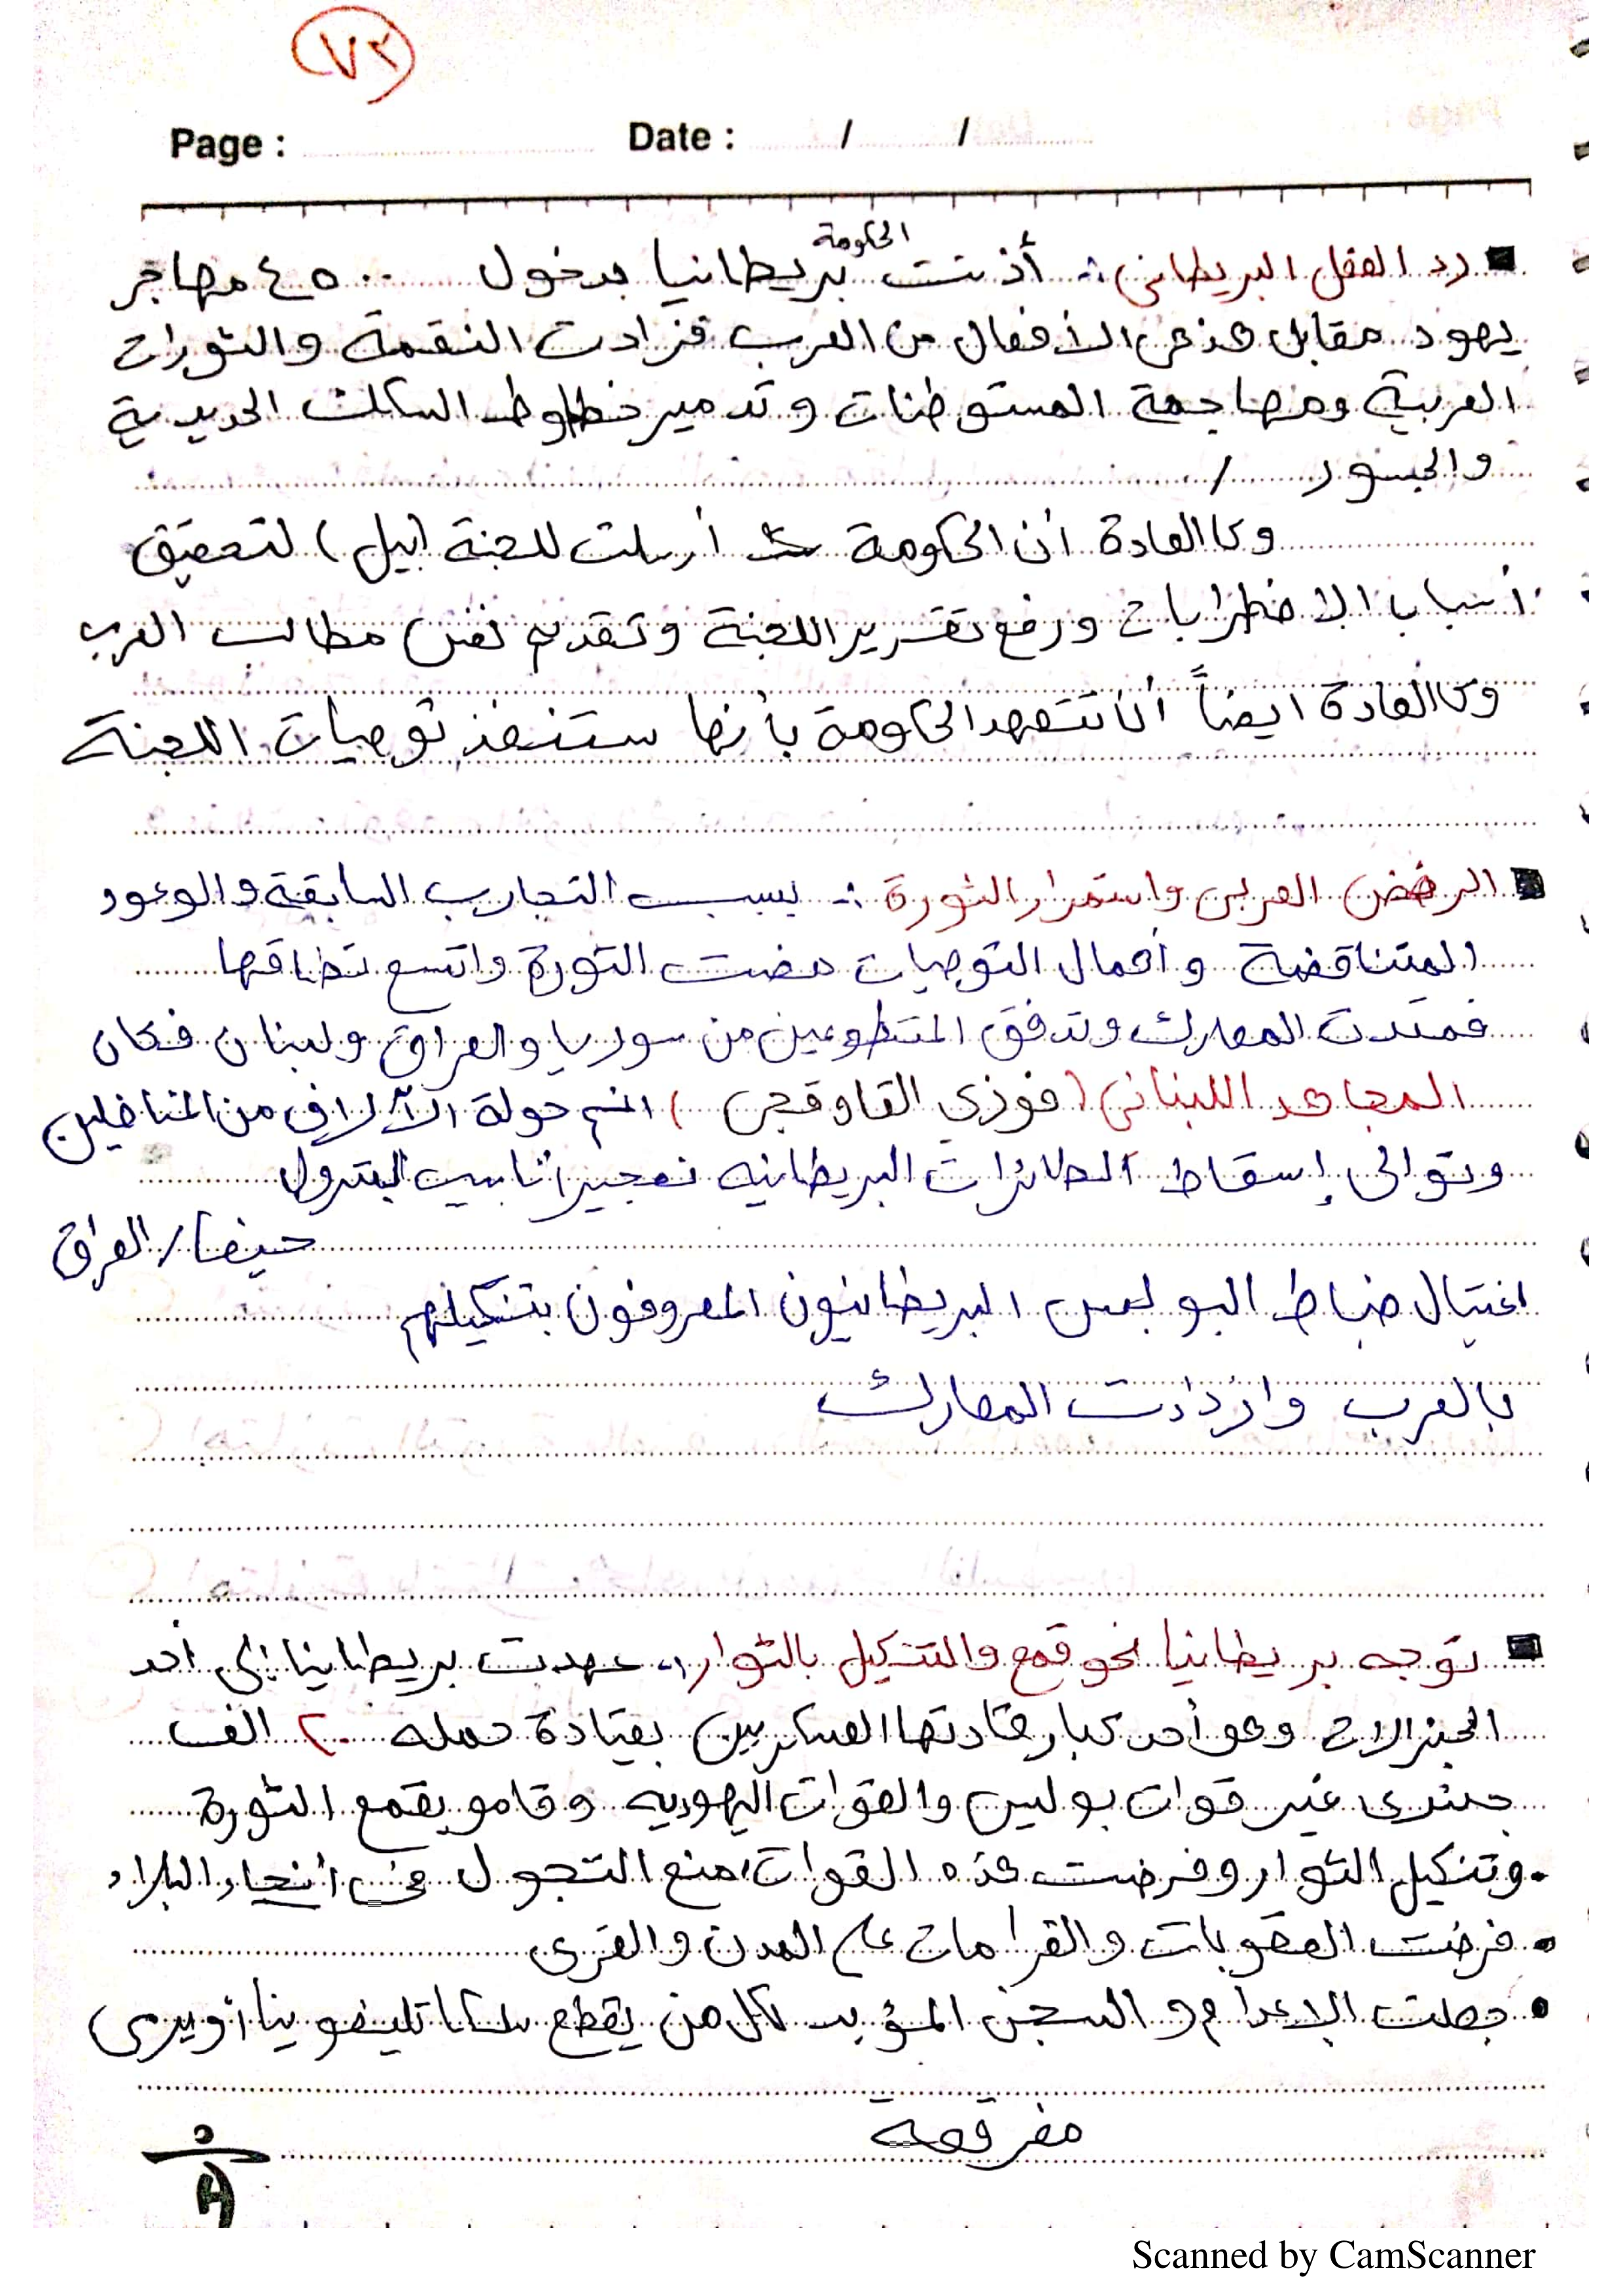 ٧٢
Page : Date : / /
رد الفعل البريطاني :- أذنت الحكومة بريطانيا بدخول ٤٥٠٠ مهاجر
يهود مقابل هذه الأفعال من العرب فزادت النقمة والثورات
العربية ومهاجمة المستوطنات وتدمير خطوط السكك الحديدية
والجسور /
وكالعادة أن الحكومة أرسلت للجنة (بيل) لتحقيق
أسباب الاضطرابات ورفع تقرير اللجنة وتقديم نفس مطالب العرب
وكالعادة ايضاً أن تتعهد الحكومة بأنها ستنفذ توصيات اللجنة
الرفض العربي واستمرار الثورة :- بسبب التجارب السابقة والوعود
المتناقضة وأهمال التوصيات مضت الثورة واتسع نطاقها
فمتدت المعارك وتدفق المتطوعين من سوريا والعراق ولبنان فكان
المجاهد اللبناني (فوذي القاوقجي) انضم حولة الآلاف من المناضلين
وتوالى إسقاط الطائرات البريطانيه تفجير أنابيب البترول
حيفا / العراق
اغتيال ضباط البوليس البريطانيون المعروفون بتنكيلهم
بالعرب وازدادت المعارك
توجه بريطانيا نحو قمع والتنكيل بالثوار :- عهدت بريطانيا إلى أحد
الجنرالات وهو أحد كبار قادتها العسكريين بقيادة حمله ٢٠ الف
جندى غير قوات بوليس والقوات اليهوديه وقامو بقمع الثورة
وتنكيل الثوار وفرضت هذه القوات، منع التجول في أنحاء البلاد
• فرضت العقوبات والغرامات على المدن والقرى
• جعلت الإعدام والسجن المؤبد لكل من يقطع سلكا تليفونيا أو يرمى
مفرقعة
Scanned by CamScanner